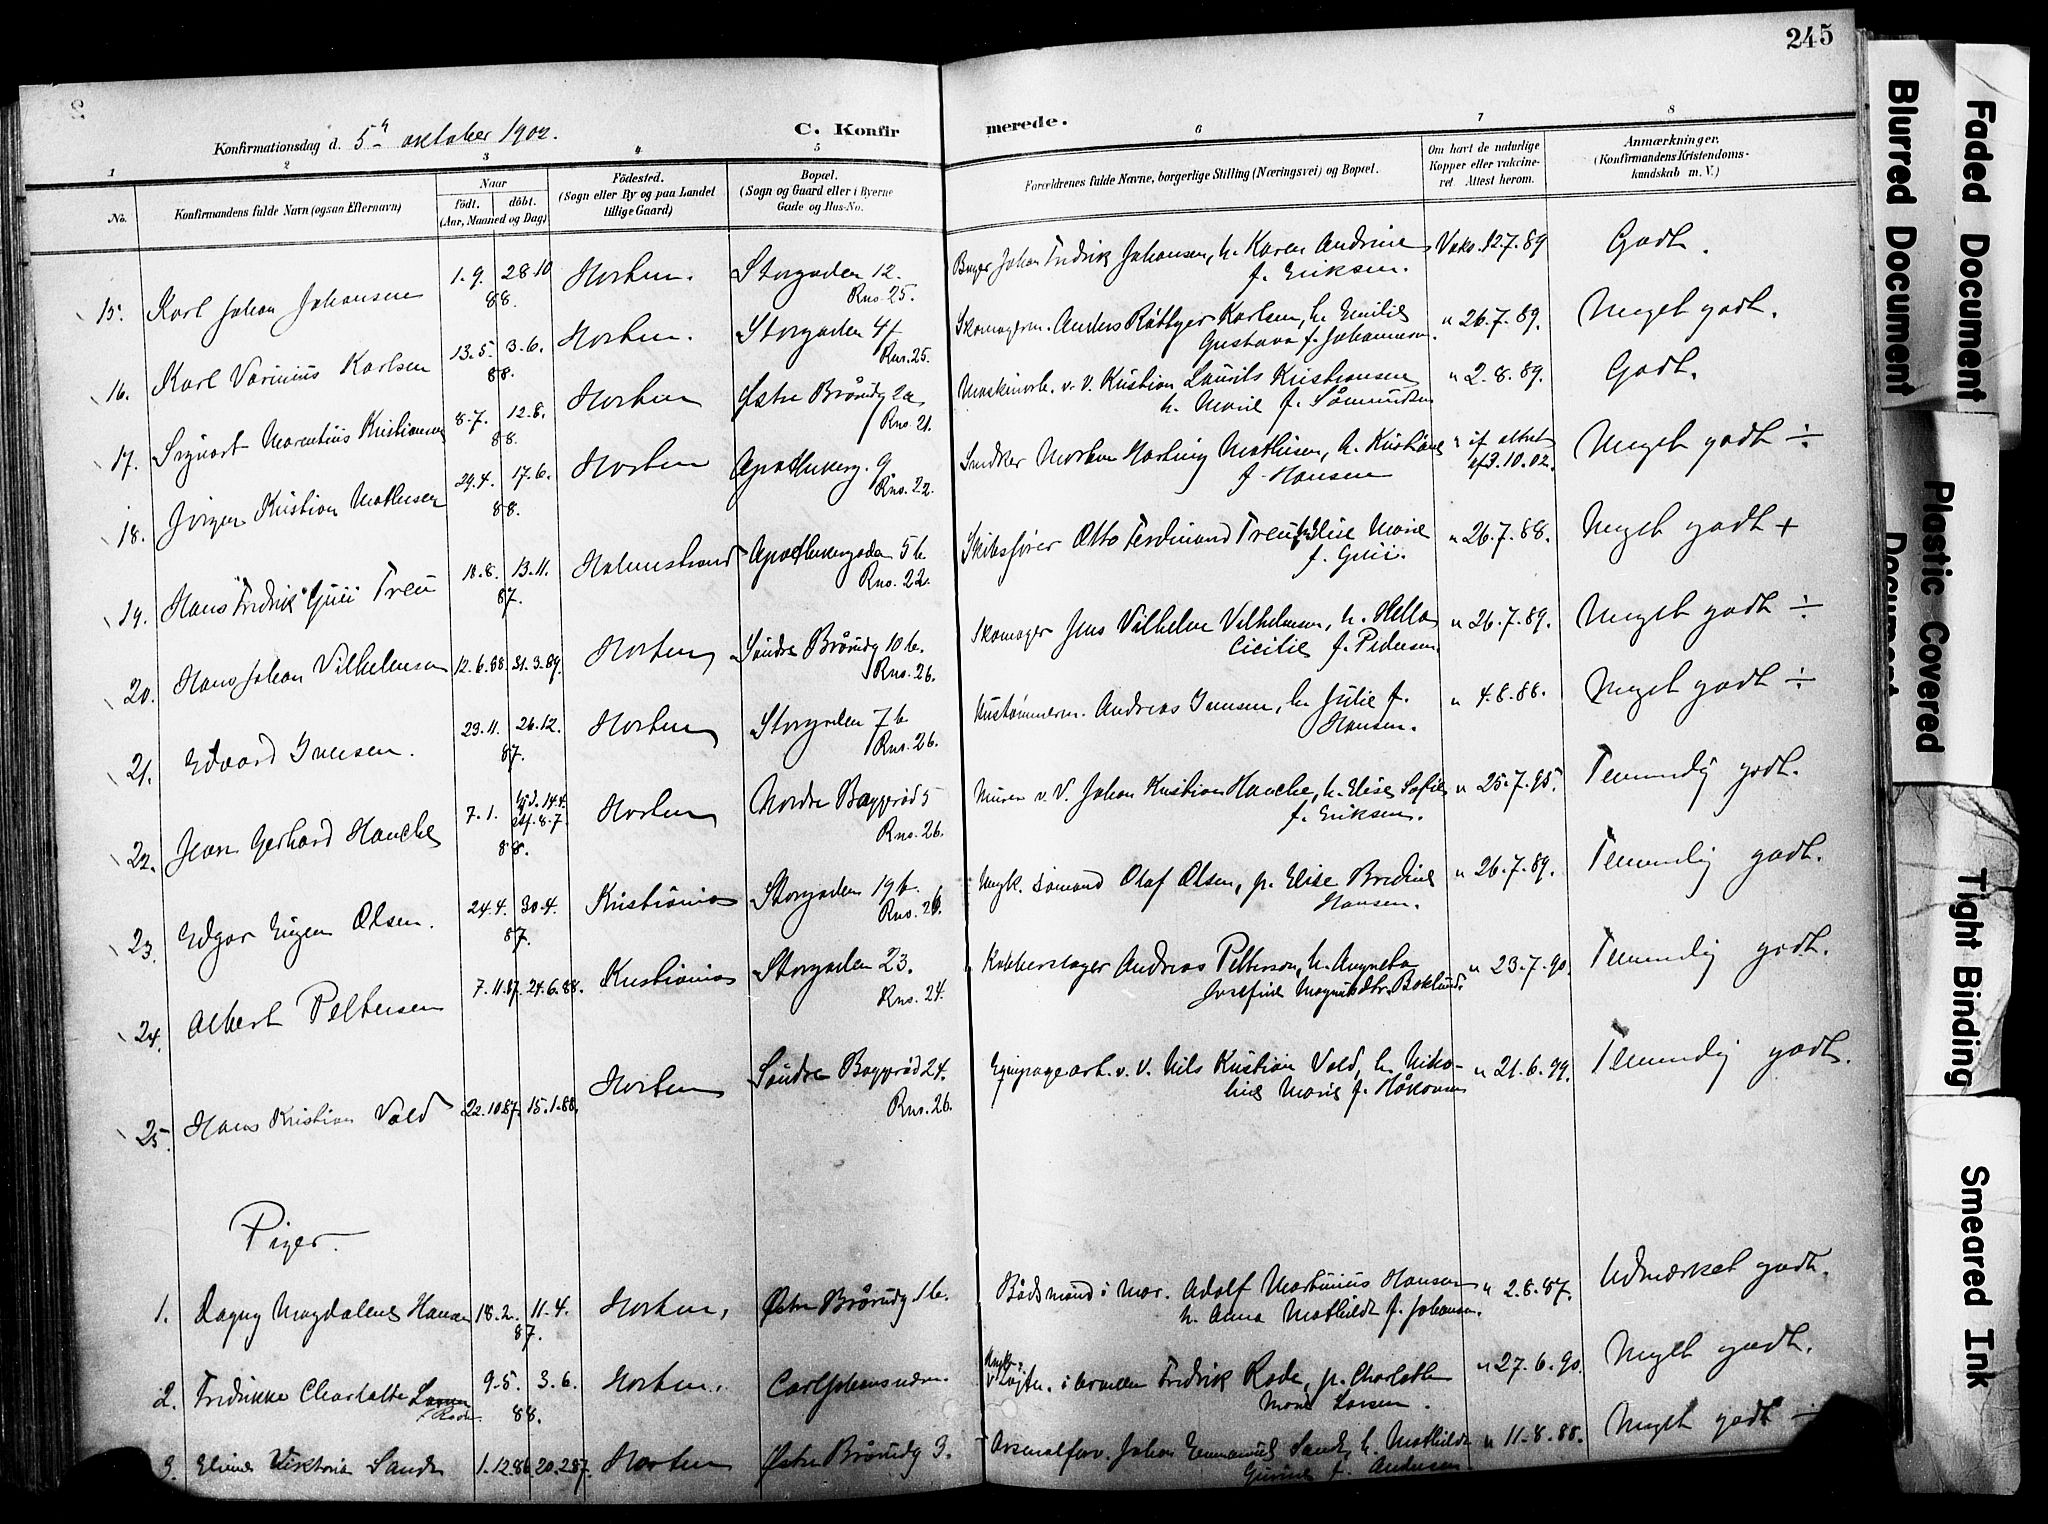 245
Konfirmationsdag d. 5te oktober 1902.
C. Konfirmerede.
1 2 3 4 5 6 7 8
No.
Konfirmandens fulde Navn (ogsaa Efternavn)
Naar
födt. döbt.
(Aar, Maaned og Dag)
Födested.
(Sogn eller By og paa Landet
tillige Gaard)
Bopæl.
(Sogn og Gaard eller i Byerne
Gade og Hus-No.
Forældrenes fulde Navne, borgerlige Stilling (Næringsvei) og Bopæl.
Om havt de naturlige
Kopper eller vakcineret
Attest herom.
Anmærkninger.
(Konfirmandens Kristendomskundskab
m. V.)
15. Karl Johan Johansen 1.9. 28.10 88. Horten. Storgaden 12. Rns. 25. Bager Johan Fredrik Johansen, h. Karen Andrine f. Eriksen. Vaks. 12.7.89 Godt.
16. Karl Varinius Karlsen 13.5. 3.6. 88. Horten. Storgaden 47 Rns. 25. Skomagerm. Anders Karlsen, h. Emilie Gustava f. Johannesen. " 26.7.89. Meget godt.
17. Sigvart Marentius Kristiansen 8.7. 12.8. 88. Horten Østre Brårudg 2a Rns. 21. Maskinarb. v. V. Kristian Laurits Kristiansen h. Marie f. " 2.8.89. Godt.
18. Jörgen Kristian Mathisen 29.4. 17.6. 88. Horten Apothekerg. 9 Rns. 22. Snedker Morten Mathisen, h. Kristiane f. Hansen " if. attest af 3.10.02. Meget godt ÷
19. Hans "Fredrik" Treu 18.8. 13.11. 87. Holmestrand Apothekergaden 5b Rns. 22. Skibsfører Otto Ferdinand Treu, h. Elise Marie f. " 26.7.88. Meget godt +
20. Hans Johan Vilhelmsen 12.6.88 31.3.89. Horten Söndre Brårudg 10b. Rns. 26. Skomager Jens Vilhelm Vilhelmsen, h. Cicilie f. Pedersen. " 26.7.89. Meget godt ÷
21. Edvard Iversen. 29.11. 26.12. 87. Horten Storgaden 7b Rns. 26. Andreas Iversen, h. Julie f. Hansen. " 4.8.88. Meget godt ÷
22. Jean Gerhard Hanche 7.1. 14.4. 8.7. 88. Horten Nordre Baggerød 5 Rns. 26. Murer v. V. Johan Kristian Hanche, h. Elise Sofie f. Eriksen. " 25.7.95. Temmelig godt.
23. Edgar Eugen Olsen. 24.4. 30.4. 87. Kristiania Storgaden 19b. Rns. 26. Ungk. sömand Olaf Olsen, p. Elise Hansen. " 26.7.89. Temmelig godt.
24. Albert Pettersen 7.11.87. 24.6.88. Kristiania Storgaden 23. Rns. 24. Kobberslager Andreas Petterson, h. Josefine Magnusdtr. " 23.7.90. Temmelig godt.
25. Hans Kristian Vold 22.10.87. 15.1.88. Horten Söndre Baggerød 24. Rns. 26. Equipagearb. v. V. Nils Kristian Vold, h. Nikoline Marie f. Håkonsen " 21.6.99. Temmelig godt.
Piger.
1. Dagny Magdalene Hansen 18.2. 11.4. 87. Horten, Østre Brårudg 1b. Bådsmand i Mar. Adolf Martinius Hansen h. Anna Mathilde f. Johansen. " 2.8.87. Udmærket godt.
2. Fredrikke Charlotte Larsen Rode 9.5. 3.6. 88. Horten. Carljohansværn. Ungk. i Armeen Fredrik Rode, p. Charlotte Marie Larsen. " 27.6.90. Meget godt.
3. Viktoria Sande 1.12.86 20.2.87. Horten Østre Brårudg 3. Arsenalforv. Johan Emmanuel Sande, h. Mathilde f. Andersen. " 11.8.88. Meget godt ÷
Faded Document
Blurred Document
Plastic Covered
Document
Tight Binding
Smeared Ink